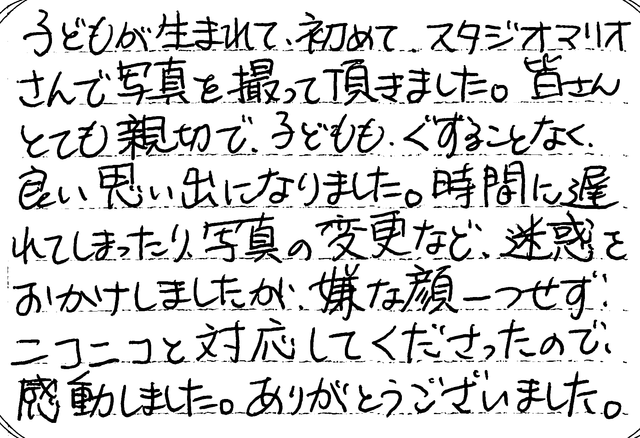 子どもが生まれて、初めて、スタジオマリオ
さんで写真を撮って頂きました。皆さん
とても親切で、子どもも、ぐずることなく、
良い思い出になりました。時間に遅
れてしまったり、写真の変更など、迷惑を
おかけしましたが、嫌な顔一つせず、
ニコニコと対応してくださったので、
感動しました。ありがとうございました。